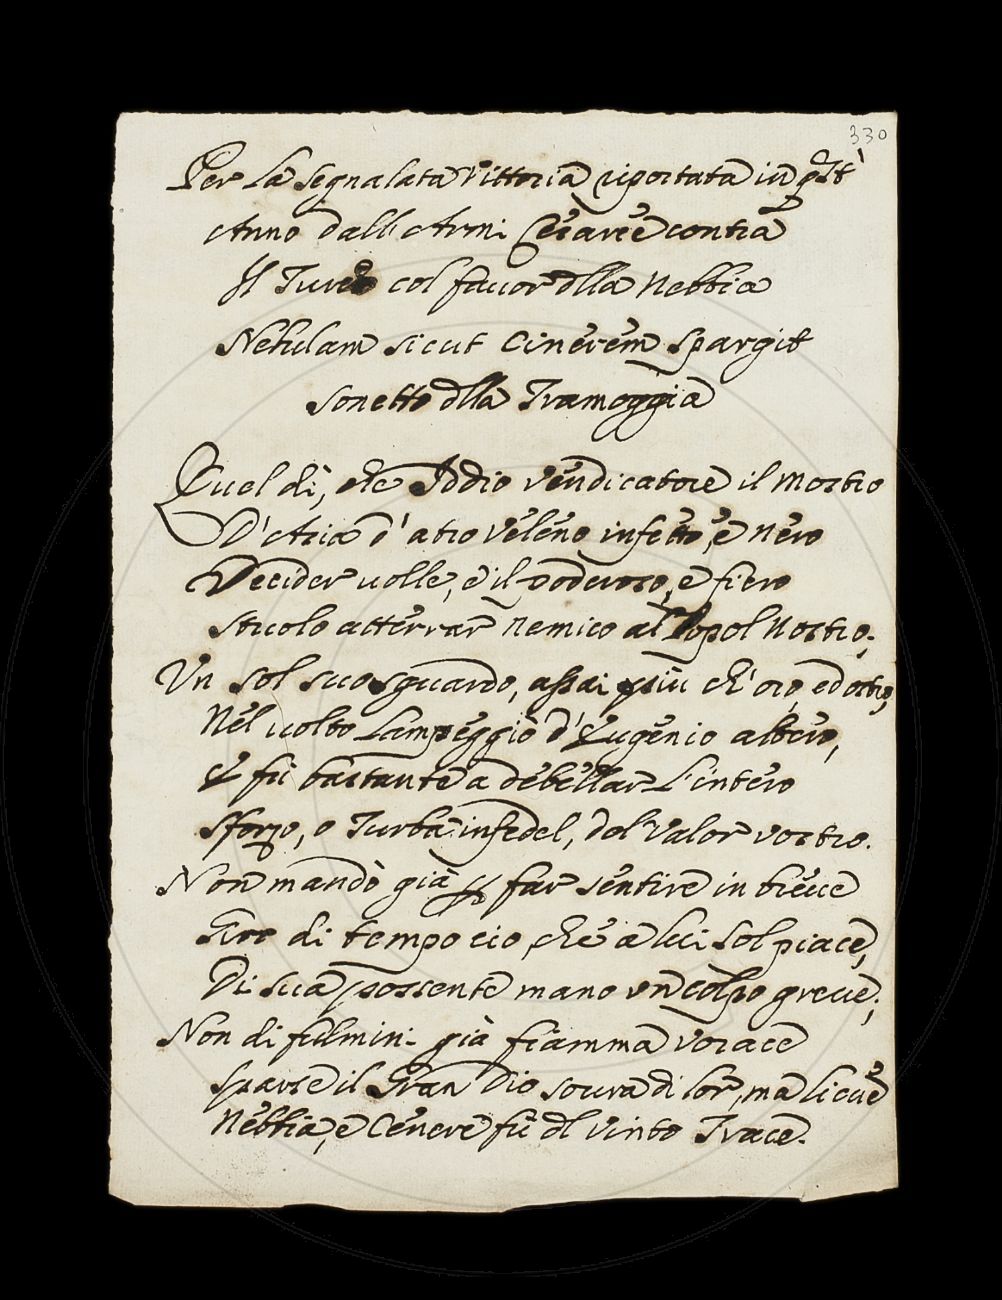 330
Per la segnalata Vittoria riportata in qst'
Anno dall' Armi Cesaree contra
Il Turco col fauor dlla Nebbia
Nebulam sicut Cinerem spargit
Sonetto dlla Tramoggia
Quel dì, che Iddio vendicatore il mostro
D'Asia d'atro veleno infetto, e nero
Decider volle, e il poderoso, e fiero
stuolo atterrar nemico al Popol nostro;
Un sol suo sguardo, assai più ch'oro, ed ostro,
Nel uolto lampeggiò d'Eugenio altero,
E fù bastante a debellar l'intero
sforzo, o Turba infedel, del valor vostro.
Non mandò già p far sentire in breue
Giro di tempo ciò, che a lui sol piace,
Di sua possente mano un colpo greue;
Non di fulmini già fiamma vorace
sparse il Gran Dio soura di lor, ma lieue
Nebbia, e Cenere fù dl vinto Trace.